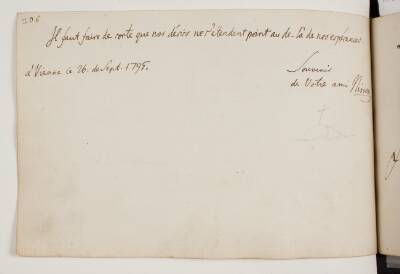 206
Il faut faire de sorte que nos désirs ne s'étendent point au de-là de nos espérances.
à Vienne ce 26. de Sept. 1795.
Souvenir
de Votre ami